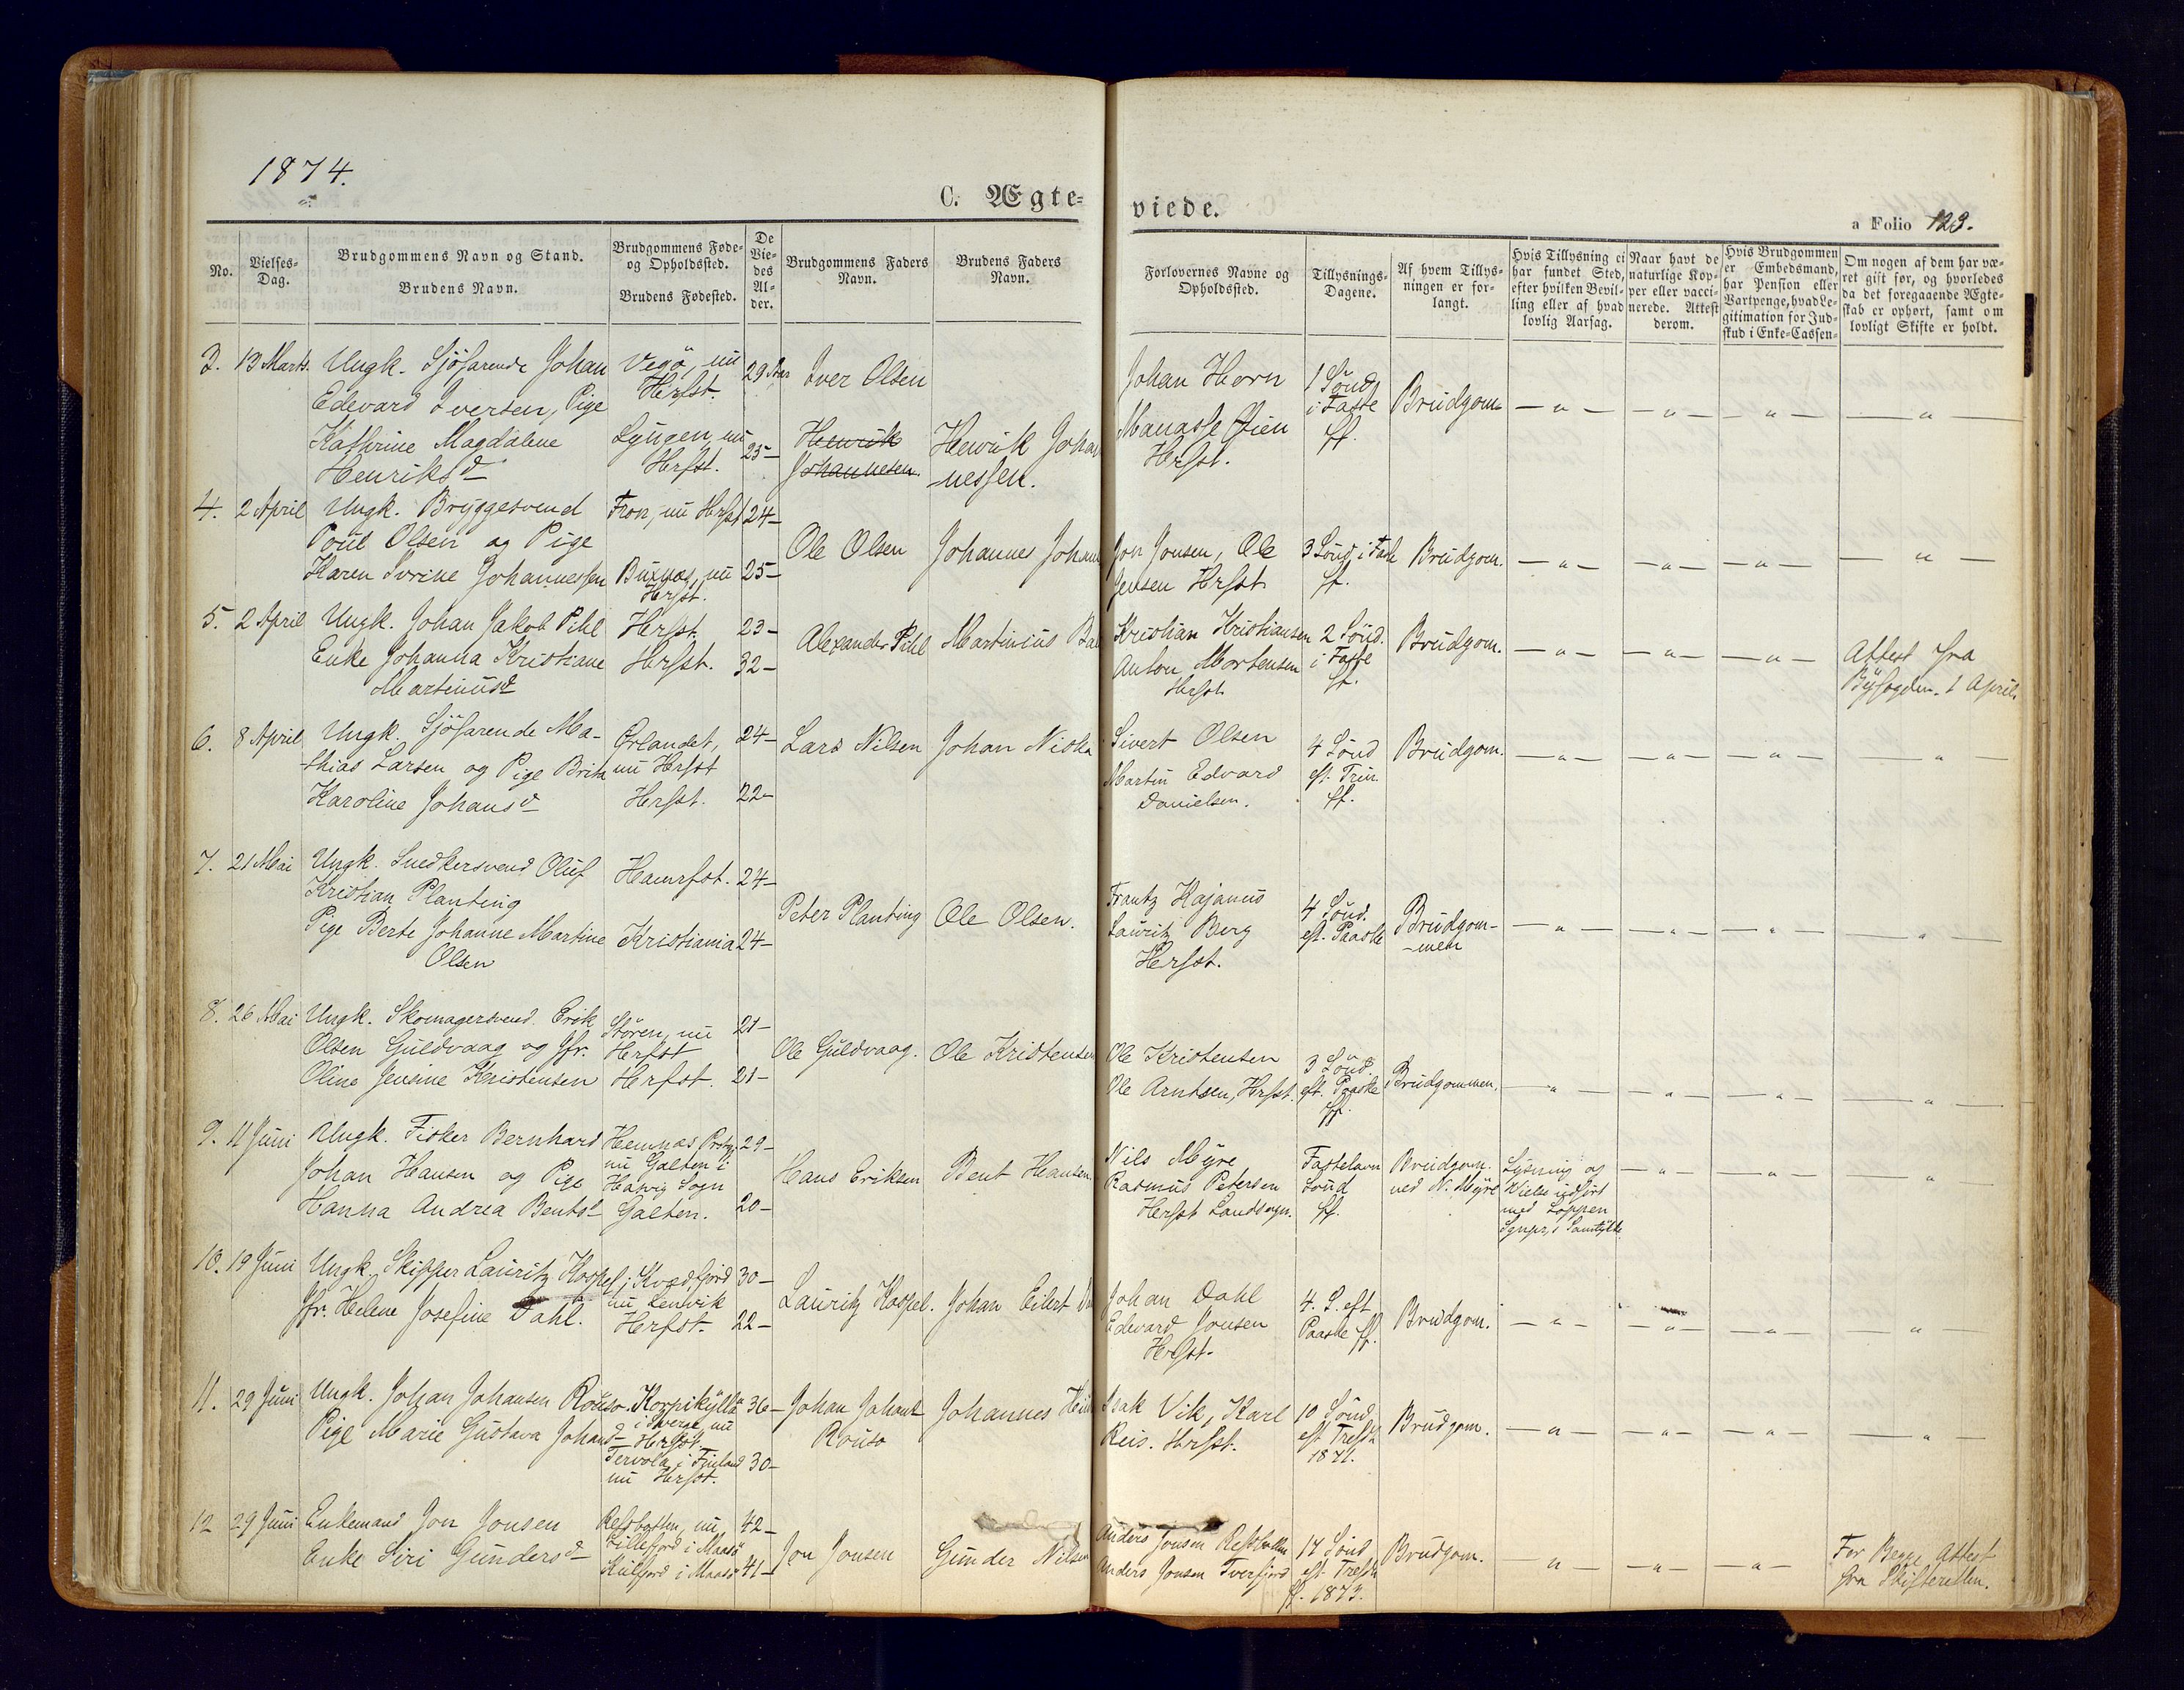 1874.
C. Ægte-
viede.
a Folio 123.
No.
Vielses-
Dag.
Brudgommens Navn og Stand.
Brudens Navn.
Brudgommens Føde-
og Opholdssted.
Brudens Fødested.
De
Vie-
des
Al-
der.
Brudgommens Faders
Navn.
Brudens Faders
Navn.
Forlovernes Navne og
Opholdssted.
Tillysnings-
Dagene.
Af hvem Tillys-
ningen er for-
langt.
Hvis Tillysning ei
har fundet Sted,
efter hvilken Bevil-
ling eller af hvad
lovlig Aarsag.
Naar havt de
naturlige Kop-
per eller vacci-
nerede. Attest
derom.
Hvis Brudgommen
er Embedsmand,
har Pension eller
Vartpenge, hvad Le-
gitimation for Ind-
skud i Enke-Cassen.
Om nogen af dem har væ-
ret gift før, og hvorledes
da det foregaaende Ægte-
skab er ophørt, samt om
lovligt Skifte er holdt.
3. 13 Marts. Ungk. Sjöfarende Johan
Edevard Iversen, Pige
Kathrine Magdalene
Henriksd
Vegö, nu
Hrfst.
Lyngen, nu
Hrfst.
29 Aar
25-
Iver Olsen
Henrik
Johannesen.
Henrik Johan
-nessen.
Johan Horn
Manasse
Hrfst.
1 Sönd
i Faste
ff.
Brudgom.
— " — — " — — " — — " —
4. 2 April Ungk. Bryggesvend
Poul Olsen og Pige
Karen Ivrine Johannessen
Fron, nu Hrfst
Buxnæs, nu
Hrfst.
24-
25-
Ole Olsen
Johannes Johann
Jon Jonsen, Ole
Jensen Hrfst
3 Sönd i Faste
ff.
Brudgom.
— " — — " — — " — — " —
5. 2 April Ungk. Johan Jakob Pihl
Enke Johanna Kristiane
Martinusd
Hrfst.
Hrfst.
23-
32-
Alexander Pihl
Martinius
Kristian Kristiansen
Anton Mortensen
Hrfst.
2 Sönd.
i Faste
ff.
Brudgom.
— " — — " — — " —
Attest fra
Byfogden. 1 April.
6. 8 April Ungk. Sjöfarende Ma-
thias Larsen og Pige Brita
Karoline Johansd
Örlandet,
nu Hrfst
Hrfst.
24-
22-
Lars Nilsen
Johan Niska
Sivert Olsen
Martin Edvard
Danielsen.
4 Sönd
eft. Trin.
ff.
Brudgom.
— " — — " — — " — — " —
7. 21 Mai Ungk. Snedkersvend Oluf
Kristian Planting
Pige Berte Johanne Martine
Olsen
Hamrfst.
Kristiania
24-
24-
Peter Planting
Ole Olsen.
Frantz Kajanus
Lauritz Berg
Hrfst.
4 Sönd.
eft. Paaske
Brudgom-
-men
— " — — " — — " — — " —
8. 26 Mai Ungk. Skomagersvend. Erik
Olsen Guldvaag og Jfr.
Oline Jensine Kristensen
Stören, nu
Hrfst
Hrfst.
21-
21-
Ole Guldvaag.
Ole Kristensen
Ole Kristensen
Ole Arntsen, Hrfst.
3 Sönd.
eft. Paaske
ff.
Brudgommen.
— " — — " — — " — — " —
9. 11 Juni Ungk. Fisker Bernhard
Johan Hansen og Pige
Hanna Andrea Bentsd
Hemnæs Prstgj.
nu Galten i
Hasvig Sogn
Galten.
29-
20-
Hans Eriksen
Bent Hansen.
Nils Myre
Rasmus Petersen
Hrfst Landsogn.
Fastelavn
Sönd
ff.
Brudgom.
ved N. Myre
Lysning og
Vielse udfört
med Loppen
Sgnpr.s Samtykke
— " — — " — — " —
10. 19 Juni Ungk. Skipper Lauritz Kaspel
Jfr. Helene Josefine Dahl.
i Kvædfjord
nu Lenvik
Hrfst.
30-
22-
Lauritz Kaspel.
Johan Eilert
Johan Dahl
Edevard Jonsen
Hrfst.
4. S. eft
Paaske ff.
Brudgom.
— " — — " — — " — — " —
11. 29 Juni Ungk. Johan Johansen Rouso.
Pige Marie Gustava Johansd
Korpikyllä
i Sverge, nu
Hrfst
Tervola, i Finland
nu Hrfst.
36-
30-
Johan Johans
Rouso
Johannes
Isak Vik, Karl
Reis. Hrfst.
10 Sönd
eft. Trefh
1871.
Brudgom.
— " — — " — — " — — " —
12 29 Juni Enkemand Jon Jonsen
Enke Siri Gundersd
Refsbotten, nu
Lillefjord i Maasö
i Maasö
42-
41-
Jon Jonsen
Gunder Nilsen
Anders Jonsen Refsbotten
Anders Jonsen Tverfjord
17 Sönd
eft. Trefh
ff. 1873.
Brudgom.
— " — — " — — " —
For Begge Attest
fra Skifteretten.